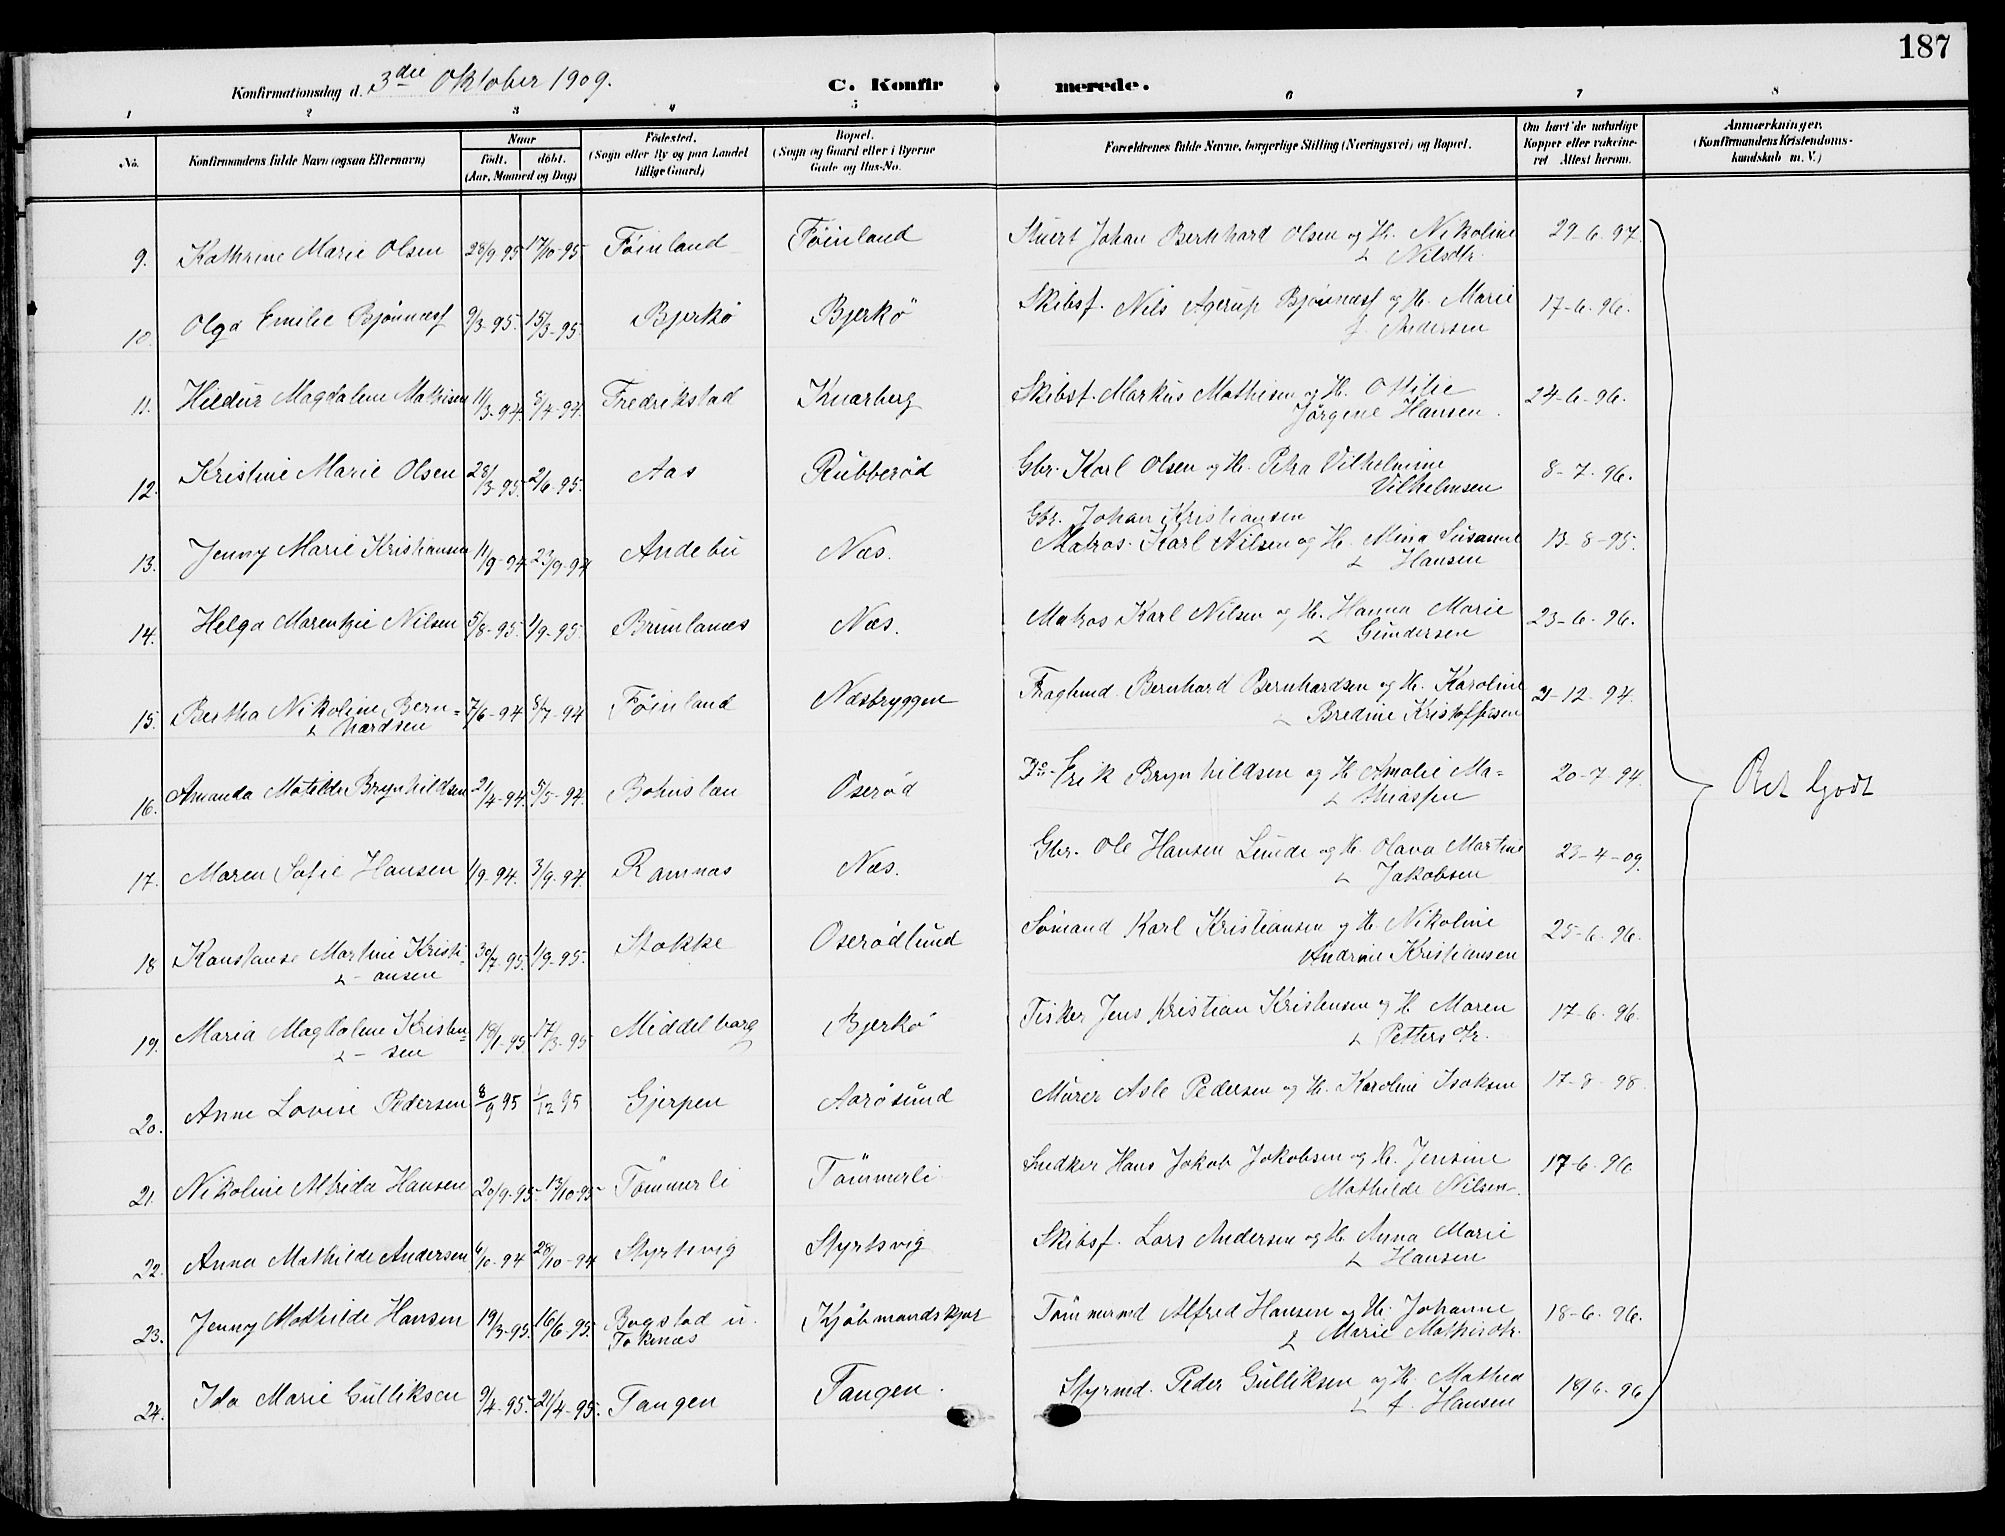 187
Konfirmationsdag d. 3die Oktober 1909. C. Konfirmerede.
1 2 3 4 5 6 7 8
No. Konfirmandens fulde Navn (ogsaa Efternavn) Naar født. døbt. (Aar, Maaned og Dag) Fødested. (Sogn eller By og paa Landet tillige Gaard) Bopæl. (Sogn og Gaard eller i Byerne Gade og Hus-No. Forældrenes fulde Navne, borgerlige Stilling (Næringsvei) og Bopæl. Om havt de naturlige Kopper eller vakcineret Attest herom. Anmærkninger. (Konfirmandens Kristendomskundskab m. V.)
9. Kathrine Marie Olsen 28/9 95 17/10-95 Föinland Föinland Stuert Johan Bernhard Olsen og H. Nikoline Nilsdtr. 29-6-97.
10. Olga Emilie Bjönnæss 9/3-95. 15/3-95 Bjerkö Bjerkö Skibsf. Nils Agerup Bjönnæss og H. Marie f. Andersen 17-6-96.
11. Hildur Magdalene Mathisen 11/3-94 8/4-94. Fredrikstad Knarberg Skibsf. Markus Mathisen og H. Otilie Jörgine Hansen. 24-6-96.
12. Kristine Marie Olsen 28/3-95. 2/6-95. Aas Rubberöd Gbr. Karl Olsen og H. Petra Vilhelmine Vilhelmsen 8-7-96.
13. Jenny Marie Kristiansen 11/9-94 23/9-94 Andebu Næs. Gbr. Johan Kristiansen
Matros Karl Nilsen og H. Mina Susanne Hansen 13-8-95.
14. Helga Marentzie Nilsen 5/8-95. 1/9-95. Brunlanæs Næs. Matros Karl Nilsen og H. Hanna Marie Gundersen 23-6-96.
15. Bertha Nikoline Bernhardsen 7/6-94 8/7-94 Föinland Næsbryggen Fragtmd. Bernhard Bernhardsen og H. Karoline Bredine Kristoffersen 21-12-94.
16. Amanda Matilde Brynhildsen 21/4-94. 5/5-94. Bohuslæn Oseröd Do. Erik Brynhildsen og H. Amalie Mathiassen 20-7 94.
17. Maren Sofie Hansen 1/9-94. 3/9-94. Ramnæs Næs. Gbr. Ole Hansen Lunde og H. Olava Martine Jakobsen 23-4-09.
18 Konstanse Martine Kristiansen 30/7-95. 1/9-95. Stokke Oserödlund Sömand Karl Kristiansen og H. Nikoline Andrine Kristiansen 25-6-96.
19. Maria Magdalene Kristensen 18/1-95 17/3-95 Middelborg Bjerkö Fisker Jens Kristian Kristensen og H. Maren Pettersdtr. 17-6-96.
20. Anne Lovise Pedersen 8/9 95 1/12 95 Gjerpen Aarösund Murer Asle Pedersen og H. Karoline Isaksen 17-8-98.
21. Nikoline Alfrida Hansen 20/9-95. 13/10-95 Tömmerli Tömmerli Snedker Hans Jakob Jakobsen og H. Jensine Mathilde Nilsen. 17-6-96
22. Anna Mathilde Andersen 6/10-94 28/10-94 Styrtsvig Styrtsvig Skibsf. Lars Andersen og H. Anna Marie Hansen
23. Jenny Mathilde Hansen 19/3-95. 16/6-95. Bogstad u. Foksnæs Kjöbmandskjær Tömmermd Alfred Hansen og H. Johanne Marie Mathisdtr. 18-6-96.
24. Ida Marie Gulliksen 9/4-95. 21/4-95. Tangen Tangen. Styrmd. Peder Gulliksen og H. Mathea f. Hansen 18/6-96
Ret Godt